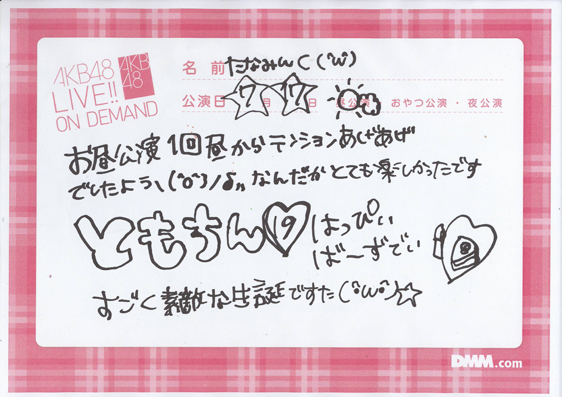 AKB48
LIVE!!
ON DEMAND
AKB
48
名前 たなみんC (^ω^)
公演日 7月 17日 昼公演・おやつ公演・夜公演
お昼公演1回昼からテンションあげあげ
でしたよう\(^o^)/♪,, なんだかとても楽しかったです
ともちん♡
はっぴぃ
ばーずでい
すごく素敵な生誕ですた(^ω^)☆
DMM.com